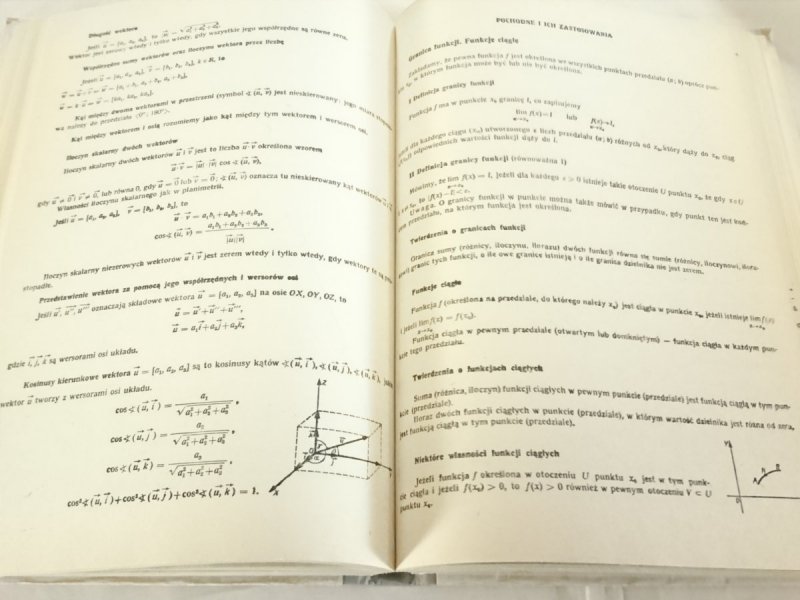 Długość wektora
Jeśli u⃗ = [a₁, a₂, a₃], to |u⃗| = √(a₁²+a₂²+a₃²).
Wektor jest zerowy wtedy i tylko wtedy, gdy wszystkie jego współrzędne są równe zeru.
Współrzędne sumy wektorów oraz iloczynu wektora przez liczbę
Jeżeli u⃗ = [a₁, a₂, a₃], v⃗ = [b₁, b₂, b₃], k ∈ R, to
w⃗ = u⃗ + v⃗ = [a₁ + b₁, a₂ + b₂, a₃ + b₃],
w⃗ = k·u⃗ = [ka₁, ka₂, ka₃].
Kąt między dwoma wektorami w przestrzeni (symbol ∢(u⃗, v⃗) jest nieskierowany; jego miara
należy do przedziału ⟨0°; 180°⟩.
Kąt między wektorem i osią rozumiemy jako kąt między tym wektorem i wersorem osi.
Iloczyn skalarny dwóch wektorów
Iloczyn skalarny dwóch wektorów u⃗ i v⃗ jest to liczba u⃗·v⃗ określona wzorem
u⃗·v⃗ = |u⃗|·|v⃗| cos ∢(u⃗, v⃗),
gdy u⃗ ≠ 0⃗ i v⃗ ≠ 0⃗, lub równa 0, gdy u⃗ = 0⃗ lub v⃗ = 0⃗; ∢(u⃗, v⃗) oznacza tu nieskierowany kąt wektorów
Własności iloczynu skalarnego jak w planimetrii.
Jeśli u⃗ = [a₁, a₂, a₃], v⃗ = [b₁, b₂, b₃], to
u⃗·v⃗ = a₁b₁ + a₂b₂ + a₃b₃,
cos∢(u⃗, v⃗) = (a₁b₁ + a₂b₂ + a₃b₃)/(|u⃗||v⃗|).
Iloczyn skalarny niezerowych wektorów u⃗ i v⃗ jest zerem wtedy i tylko wtedy, gdy wektory te są
stopadłe.
Przedstawienie wektora za pomocą jego współrzędnych i wersorów osi
Jeśli u⃗', u⃗'', u⃗''' oznaczają składowe wektora u⃗ = [a₁, a₂, a₃] na osie OX, OY, OZ, to
u⃗ = u⃗' + u⃗'' + u⃗''',
u⃗ = a₁i⃗ + a₂j⃗ + a₃k⃗,
gdzie i⃗, j⃗, k⃗ są wersorami osi układu.
Kosinusy kierunkowe wektora u⃗ = [a₁, a₂, a₃] są to kosinusy kątów ∢(u⃗, i⃗), ∢(u⃗, j⃗), ∢(u⃗, k⃗), jakie
wektor u⃗ tworzy z wersorami osi układu.
cos∢(u⃗, i⃗) = a₁/√(a₁²+a₂²+a₃²),
cos∢(u⃗, j⃗) = a₂/√(a₁²+a₂²+a₃²),
cos∢(u⃗, k⃗) = a₃/√(a₁²+a₂²+a₃²),
cos²∢(u⃗, i⃗)+cos²∢(u⃗, j⃗)+cos²∢(u⃗, k⃗) = 1.
Z
X
POCHODNE I ICH ZASTOSOWANIA
Granica funkcji. Funkcje ciągłe
Zakładamy, że pewna funkcja f jest określona we wszystkich punktach przedziału (a; b) oprócz
x₀, w którym funkcja może być lub nie być określona.
I Definicja granicy funkcji
Funkcja f ma w punkcie x₀ granicę l, co zapisujemy
lim f(x) = l lub f(x)→l,
x→x₀ x→x₀
dla każdego ciągu (xₙ) utworzonego z liczb przedziału (a; b) różnych od x₀, który dąży do x₀, ciąg
(f(xₙ)) odpowiednich wartości funkcji dąży do l.
II Definicja granicy funkcji (równoważna I)
Mówimy, że lim f(x) = l, jeżeli dla każdego ε > 0 istnieje takie otoczenie U punktu x₀, że gdy x∈U
i x≠x₀, to |f(x)−l| < ε.
Uwaga. O granicy funkcji w punkcie można także mówić w przypadku, gdy punkt ten jest
przedziału, na którym funkcja jest określona.
Twierdzenia o granicach funkcji
Granica sumy (różnicy, iloczynu, ilorazu) dwóch funkcji równa się sumie (różnicy, iloczynowi,
granic tych funkcji, o ile owe granice istnieją i o ile granica dzielnika nie jest zerem.
Funkcje ciągłe
Funkcja f (określona na przedziale, do którego należy x₀) jest ciągła w punkcie x₀, jeżeli istnieje lim f(x)
i jeżeli lim f(x) = f(x₀).
x→x₀
Funkcja ciągła w pewnym przedziale (otwartym lub domkniętym) — funkcja ciągła w każdym pun-
kcie tego przedziału.
Twierdzenia o funkcjach ciągłych
Suma (różnica, iloczyn) funkcji ciągłych w pewnym punkcie (przedziale) jest funkcją ciągłą w tym pun-
kcie (przedziale).
Iloraz dwóch funkcji ciągłych w punkcie (przedziale), w którym wartość dzielnika jest różna od zera,
jest funkcją ciągłą w tym punkcie (przedziale).
Niektóre własności funkcji ciągłych
Jeżeli funkcja f określona w otoczeniu U punktu x₀ jest w tym punk-
cie ciągła i jeżeli f(x₀) > 0, to f(x) > 0 również w pewnym otoczeniu V ⊂ U
punktu x₀.
Y
A
B
0